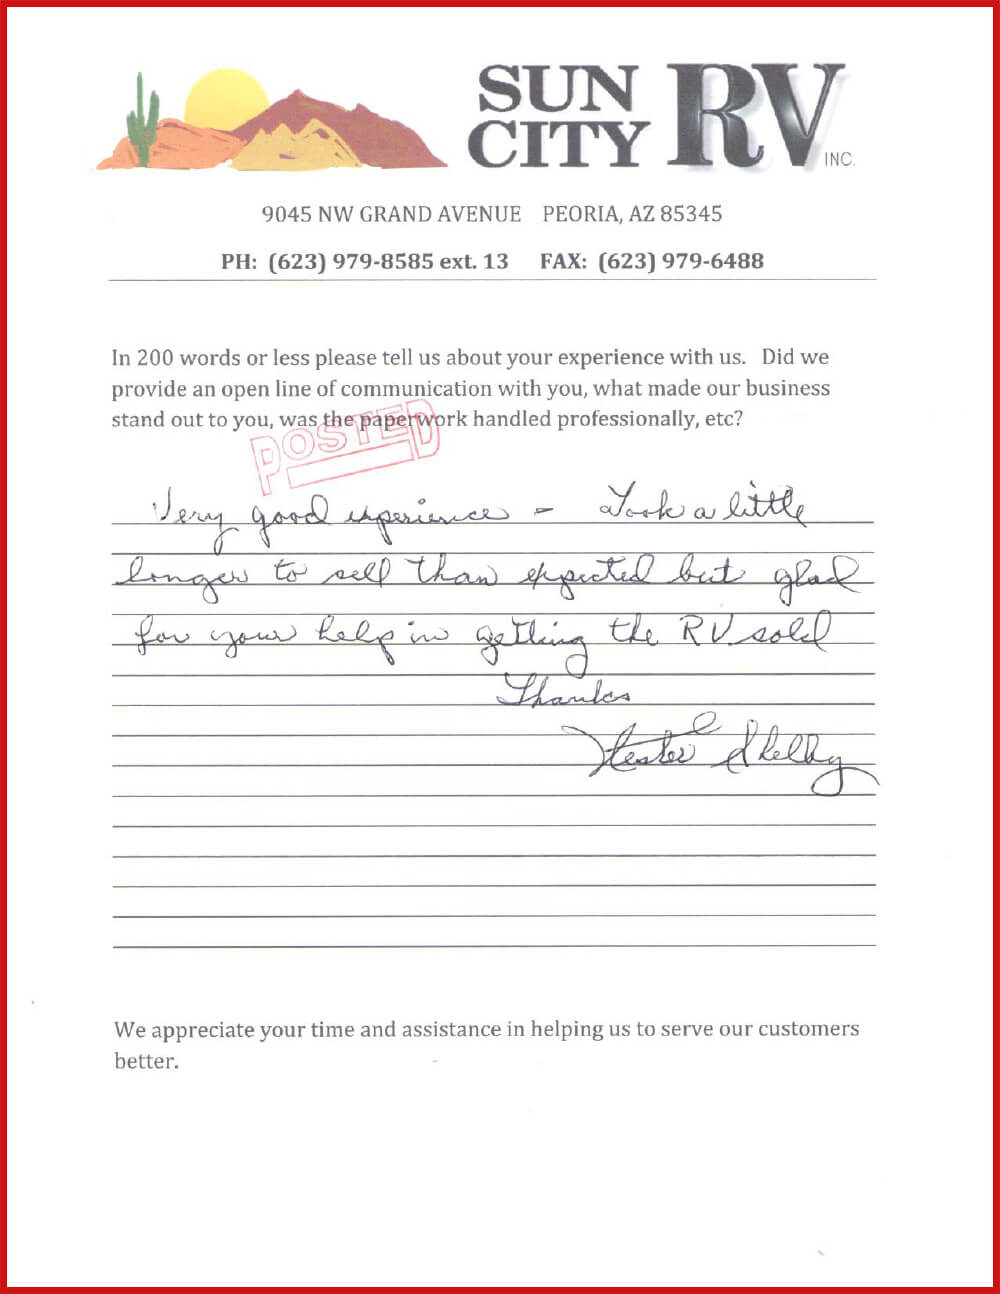 SUN CITY RV INC.
9045 NW GRAND AVENUE PEORIA, AZ 85345
PH: (623) 979-8585 ext. 13 FAX: (623) 979-6488
In 200 words or less please tell us about your experience with us. Did we
provide an open line of communication with you, what made our business
stand out to you, was the paperwork handled professionally, etc?
POSTED
Very good experience - Took a little
longer to sell than expected but glad
for your help in getting the RV sold
Thanks
Hester Shelby
We appreciate your time and assistance in helping us to serve our customers
better.